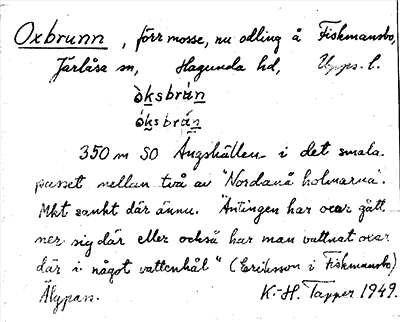 Oxbrunn, förr mosse, nu odling å Fiskmansbo,
Järlåsa sn, Hagunda hd, Upps. l.
òksbrún
óksbrán
350 m SO Ängshällen i det smala
passet mellan två av "Nordanå holmarna".
Mkt sankt där ännu. "Antingen har oxar gått
ner sig där eller också har man vattnat oxar
där i något vattenhål" (Eriksson i Fiskmansbo)
Älgpass. K.-H. Tapper 1949.